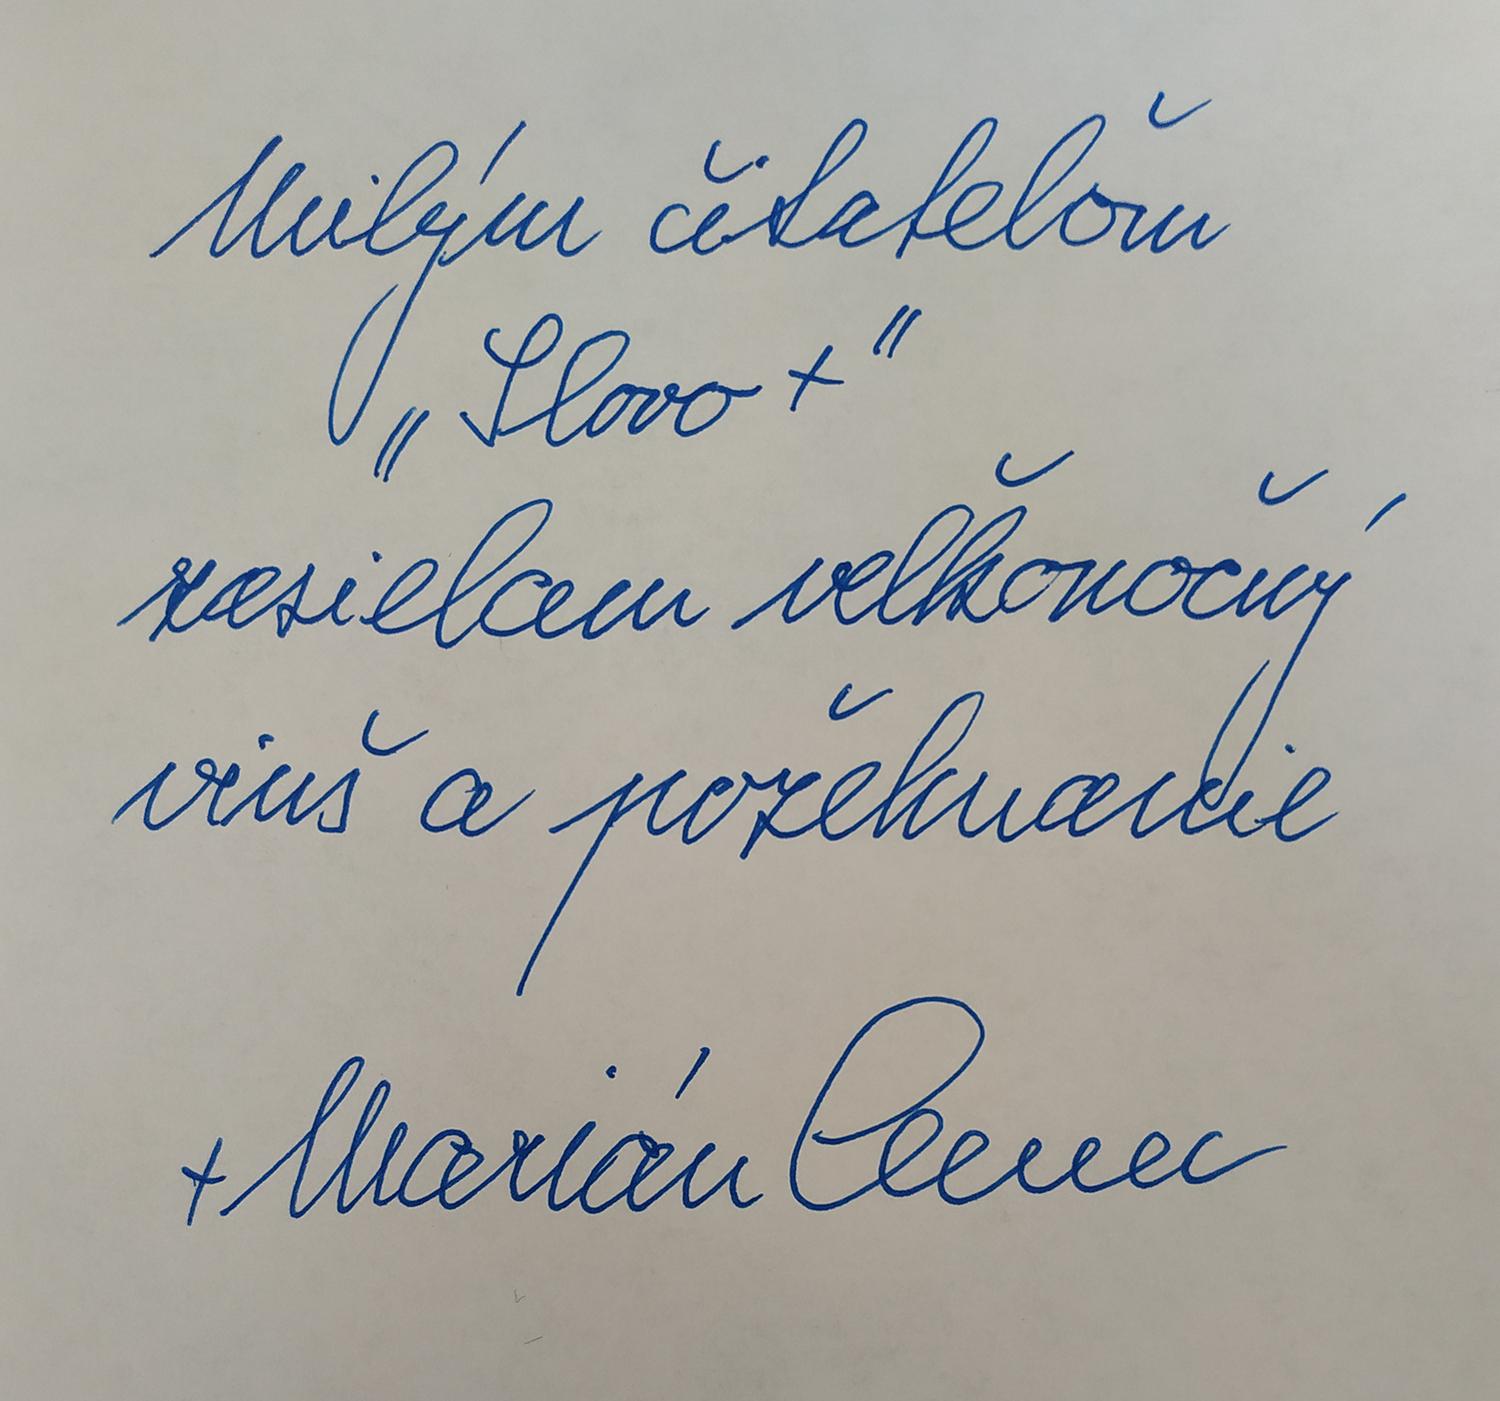 Milým čitateľom
„Slovo +"
zasielam veľkonočný
vinš a požehnanie
+ Marián Čenec